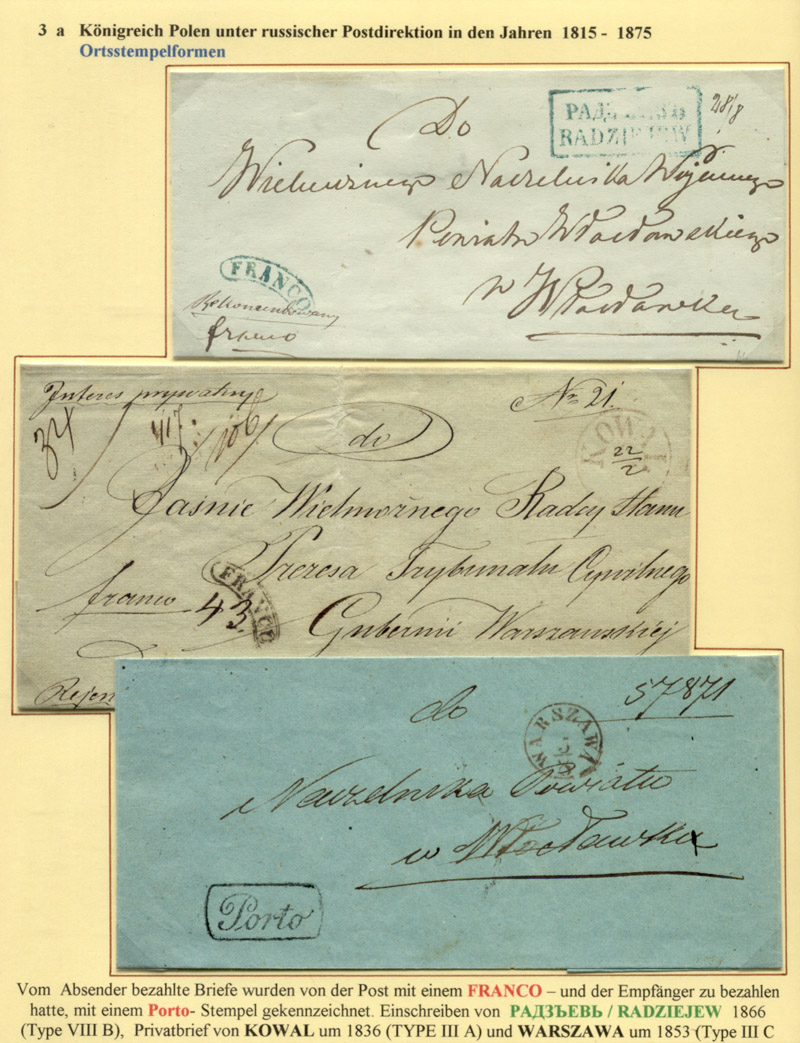 3 a Königreich Polen unter russischer Postdirektion in den Jahren 1815 - 1875
Ortsstempelformen
Do
РАДЗ
RADZIEJEW
28/8
Wielmożnego Naczelnika Wojennego
Powiatu Włocławskiego
w Włocławku
FRANCO
Rekomendowany
franco
Interes prywatny
No 21.
34
417
106
do
KOWAL
22/2
Jaśnie Wielmożnego Radcy Stanu
Prezesa Trybunału Cywilnego
FRANCO
franco
43.
Gubernii Warszawskiej
Rejen
do
57871
WARSZAWA
Naczelnika Powiatu
w Włocławku
Porto
Vom Absender bezahlte Briefe wurden von der Post mit einem FRANCO – und der Empfänger zu bezahlen
hatte, mit einem Porto- Stempel gekennzeichnet. Einschreiben von РАДЗЪЕВЬ / RADZIEJEW 1866
(Type VIII B), Privatbrief von KOWAL um 1836 (TYPE III A) und WARSZAWA um 1853 (Type III C